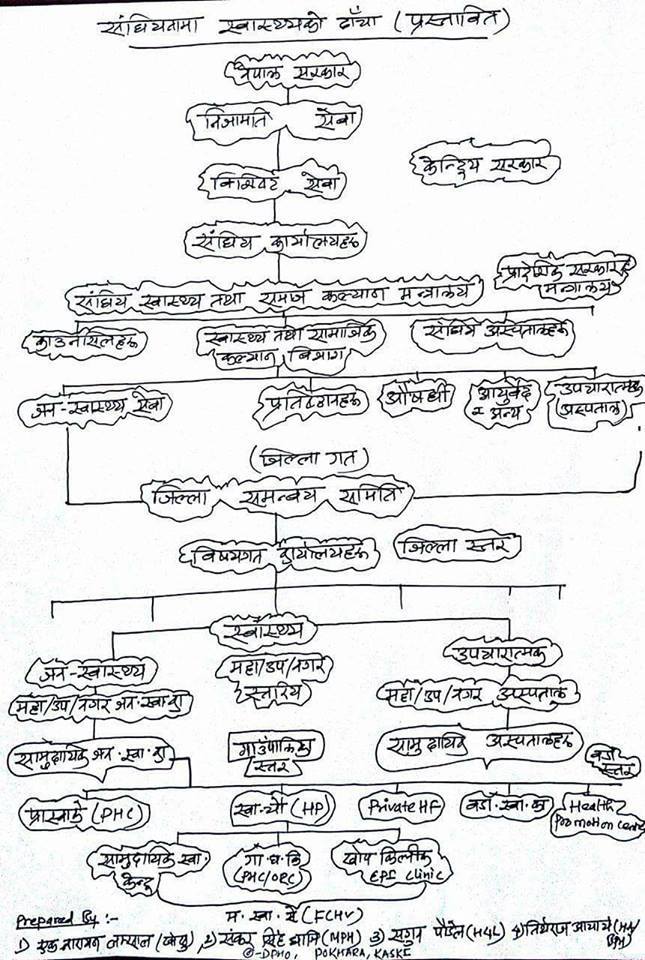 संघियतामा स्वास्थ्यको ढाँचा (प्रस्तावित)
नेपाल सरकार
निजामति सेवा
केन्द्रिय सरकार
सेवा
संघिय कार्यालयहरु
प्रादेशिक सरकार
मन्त्रालय
संघिय स्वास्थ्य तथा समाज कल्याण मन्त्रालय
काउन्सिलहरु
स्वास्थ्य तथा सामाजिक
कल्याण विभाग
संघिय अस्पतालहरु
जन-स्वास्थ्य सेवा
औषधी
आयुर्वेद
र अन्य
उपचारात्मक
(अस्पताल)
(जिल्ला गत)
जिल्ला समन्वय समिति
विषयगत कार्यालयहरु
जिल्ला स्तर
स्वास्थ्य
जन-स्वास्थ्य
महा/उप/नगर
स्तरिय
उपचारात्मक
महा/उप/नगर जन.स्वा.का
महा/उप/नगर अस्पताल
सामुदायिक जन.स्वा.का
गाउँपालिका
स्तर
सामुदायिक अस्पतालहरु
वडा
स्तर
प्रास्वाके (PHC)
स्वा.चौ (HP)
Private HF
वडा.स्वा.का
Health
Promotion Centre
सामुदायिक स्वा.
केन्द्र
गाँ.घ.कि
(PHC/ORC)
खोप क्लिनीक
EPI Clinic
म.स्वा.से (FCHV)
Prepared By :-
2) संकर (MPH) 3) सगुन पौडेल 4) तिर्थराज आचार्य
©-DPHO, POKHARA, KASKI